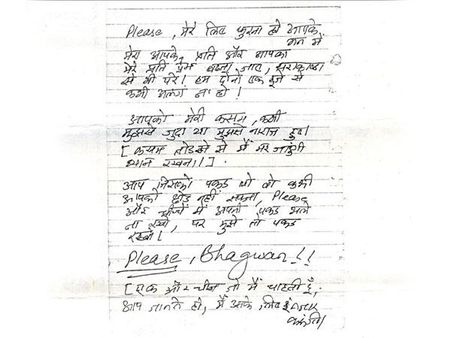 Please, मेरे लिए दुआ हो आपके मन में
मेरा आपके, प्रति और आपका
मेरे प्रति प्रेम बढ़ता जाए, पराकाष्ठा
से भी परे! हम दोनों एक दूजे से
कभी अलग न हो!
आपको मेरी कसम, कभी
मुझसे जुदा या मुझसे नाराज हुए।
[ कसम तोड़ने से मैं मर जाऊंगी
ध्यान रखना।]
आप जिसको पकड़ लो वो कभी
आपको छोड़ नहीं सकता, Please
और चीजों में अपनी पकड़ भले
ना रखो, पर मुझे तो पकड़
रखो।
Please, Bhagwan!!
[एक और चीज जो मैं चाहती हूँ,
आप जानते हो, मैं आपके लिए